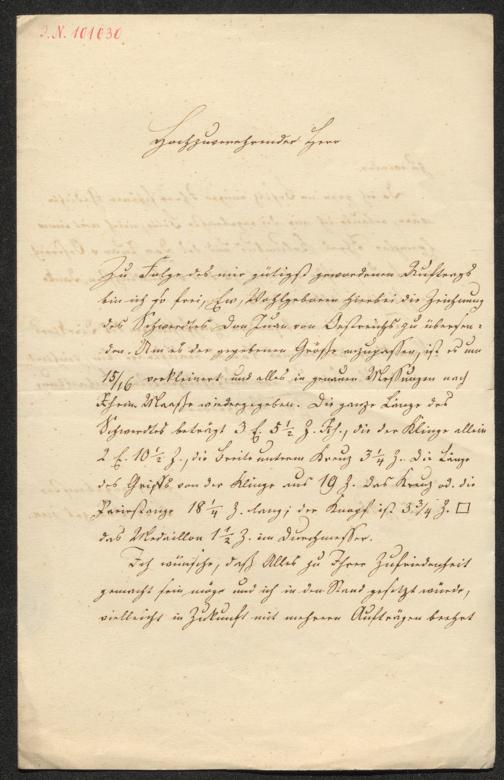 I.N. 101030
Hochzuverehrender Herr
Zu Folge des mir gütigst gewordenen Auftrags
bin ich so frei, Ew. Wohlgeboren hierbei die Zeichnung
des Schwerdtes Don Juan von Oestreichs zu übersen-
den. Um es der gegebenen Größe anzupassen, ist es um
15/16 verkleinert und alles in genauen Messungen nach
Rhein. Maaße wiedergegeben. Die ganze Länge des
Schwerdtes beträgt 3 F. 5 1/2 Z. Rh., die der Klinge allein
2 F. 10 1/2 Z., die Breite unterm Kreuz 3 1/4 Z. Die Länge
des Griffs von der Klinge aus 19 Z. Das Kreuz od. die
Parirstange 18 1/4 Z. lang; der Knopf ist 3 3/4 Z. □
das Medaillon 1 1/2 Z. im Durchmesser.
Ich wünsche, daß Alles zu Ihrer Zufriedenheit
gemacht sein möge und ich in den Stand gesetzt würde,
vielleicht in Zukunft mit mehrern Aufträgen beehrt